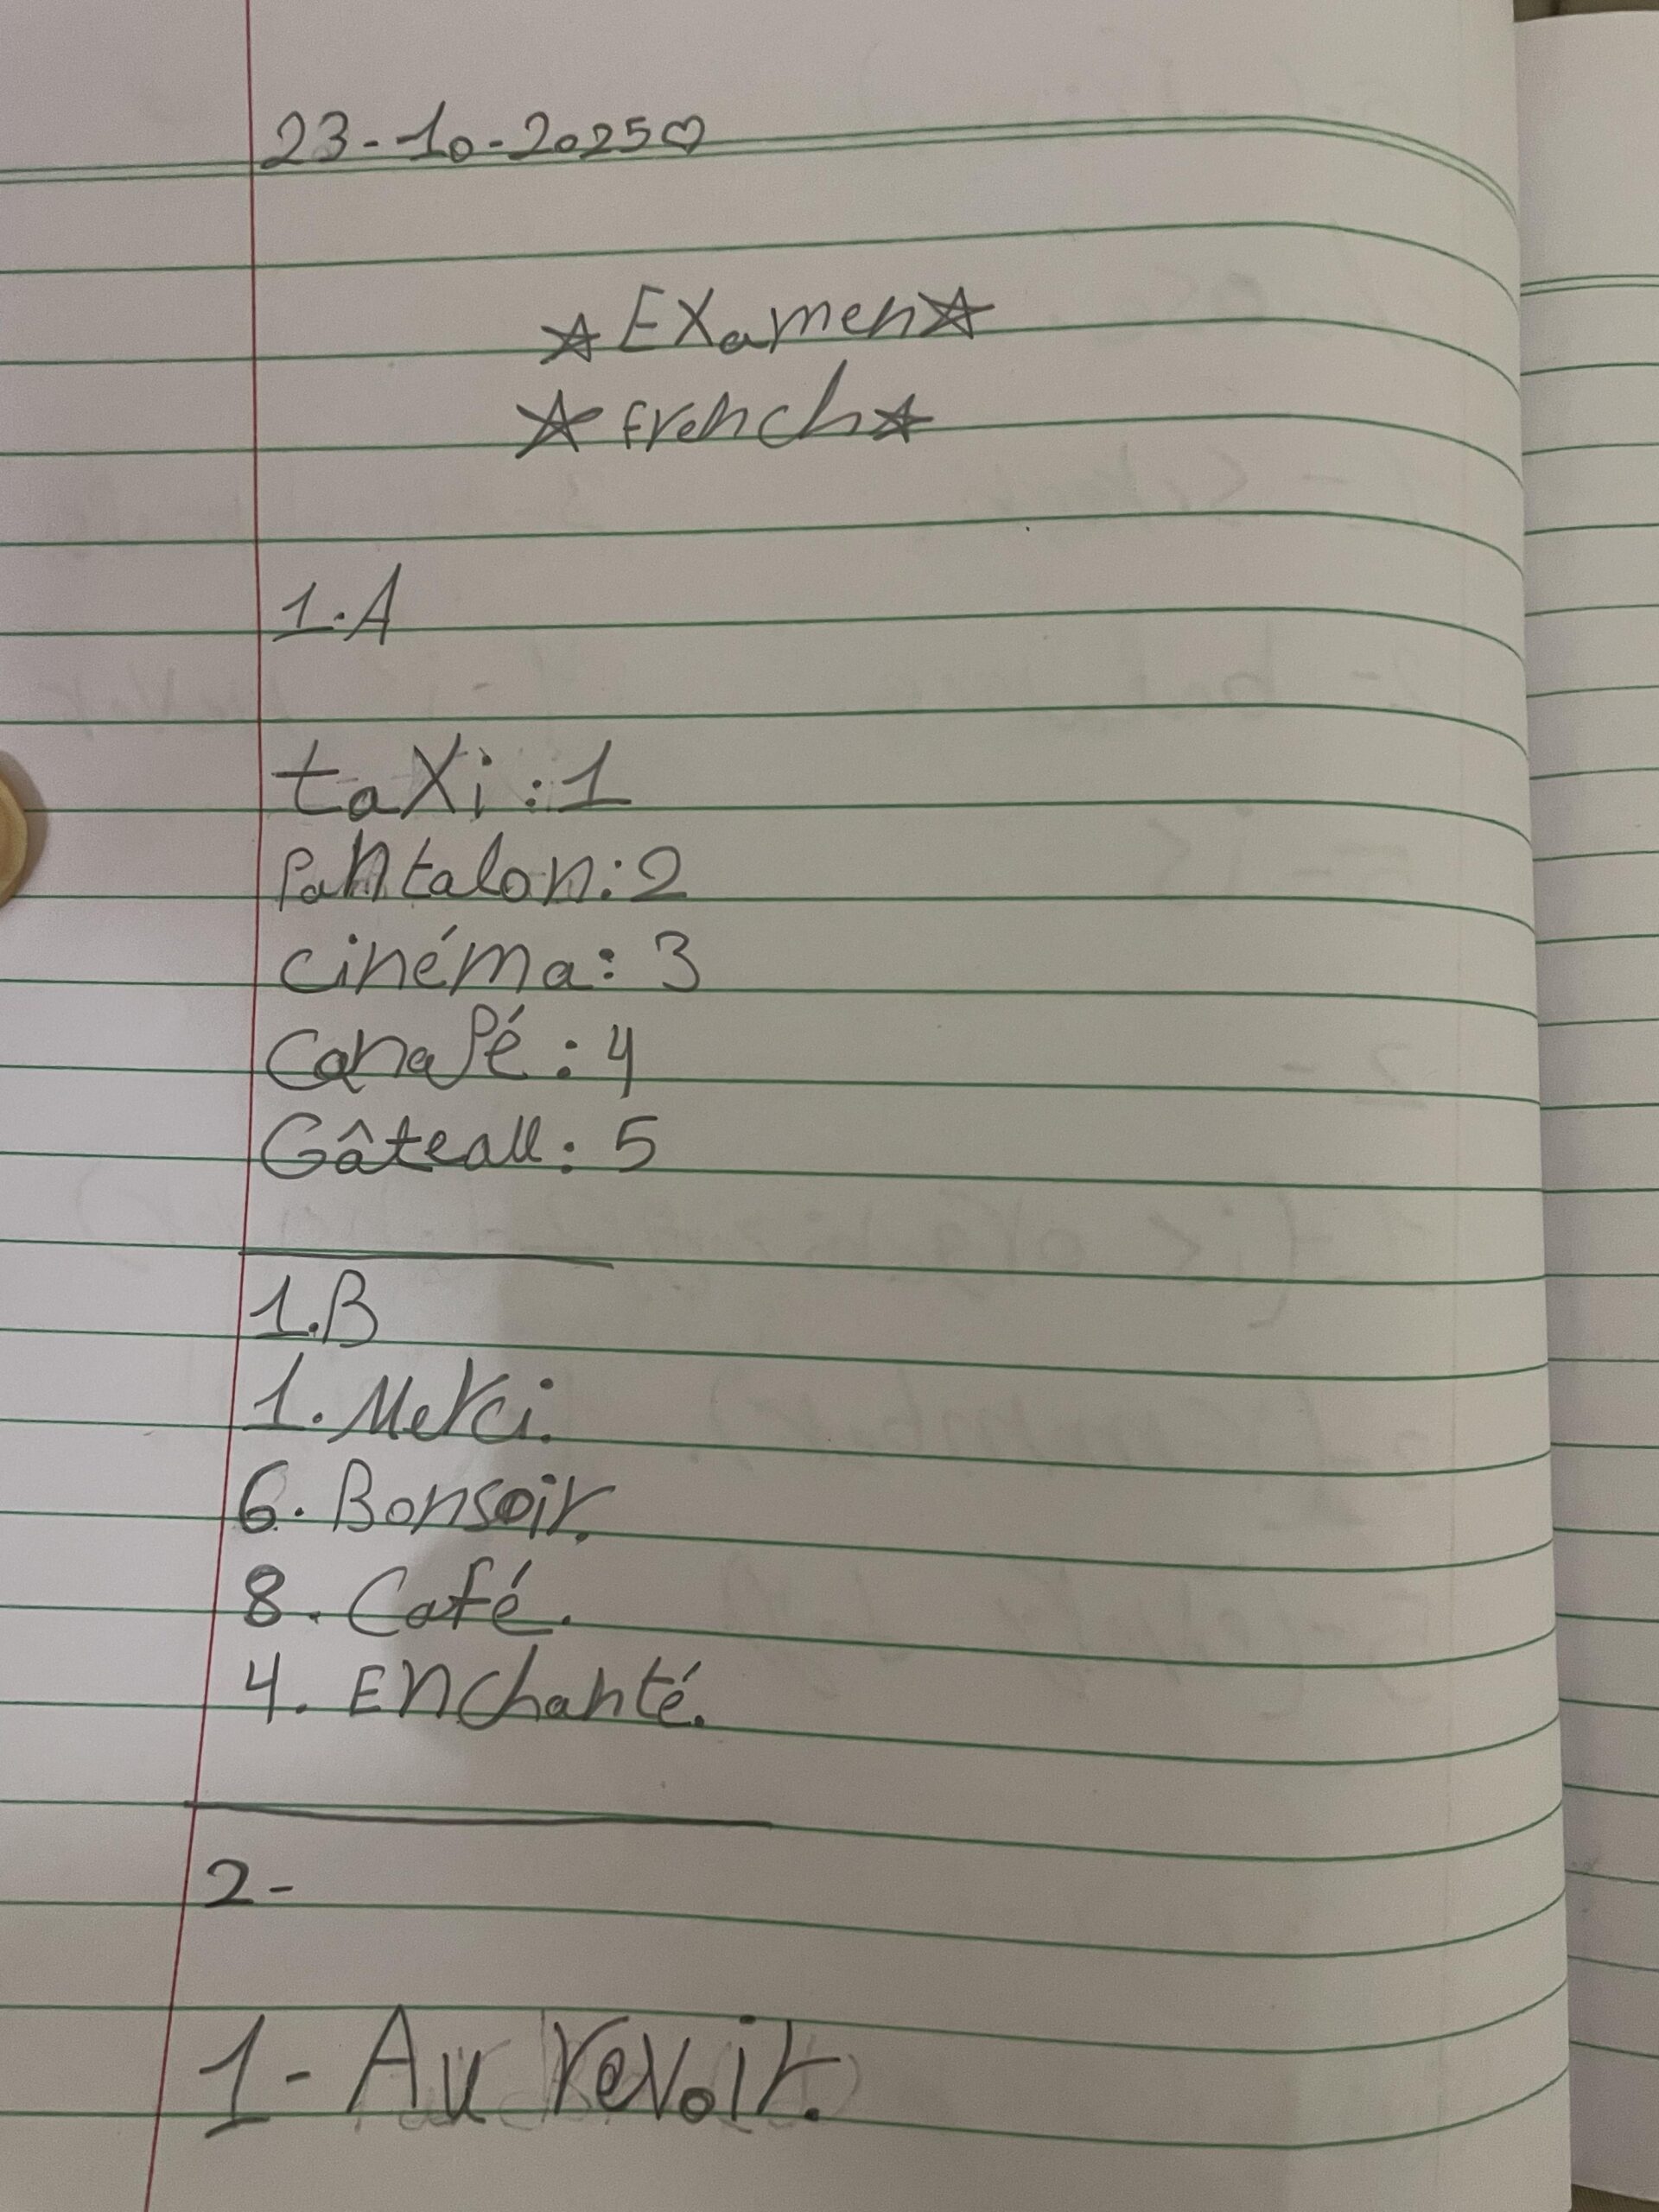 23-10-2025♡
☆EXamen☆
☆French☆
1.A
taXi:1
Pantalon:2
cinéma:3
CanaPé:4
Gâteau:5
1.B
1.Merci.
6.Bonsoir.
8.Café.
4.Enchanté.
2-
1-Au revoir.